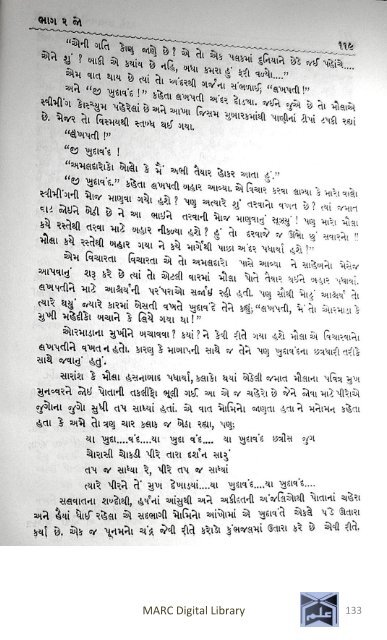 ભાગ ૨ જો ૧૧૯
“એની ગતિ કોણ જાણે છે? એ તો એક પલકમાં દુનિયાને છેડે જઈ પહોંચે....
એને શું? બાકી એ કયાંય છે નહિ, બધા કમરા હું ફરી વળ્યો....”
એમ વાત થાય છે ત્યાં તો અંદરથી ગર્જના સંભળાઈ, “લખપતી!”
અને “જી ખુદાવંદ!” કહેતા લખપતી અંદર દોડયા. જઈને જુએ છે તો મૌલાએ
સ્વીમીંગ કોસ્ચ્યુમ પહેરેલાં છે અને આખા જિસમ મુબારકમાંથી પાણીનાં ટીપાં ટપકી રહ્યાં
છે. મેજર તો વિસ્મયથી સ્તબ્ધ થઈ ગયા.
“લખપતી!”
“જી ખુદાવંદ!
“અમલદારોકો બોલો કે મૈં અભી તૈયાર હોકાર આતા હું.”
“જી ખુદાવંદ.” કહેતા લખપતી બહાર આવ્યા. એ વિચાર કરવા લાગ્યા કે મારો વાલો
સ્વીમીંગની મોજ માણવા ગયો હશે? પણ અત્યારે શું તરવાનો વખત છે? ત્યાં જમાત
વાટ જોઈને બેઠી છે ને આ ભાઈને તરવાની મોજ માણવાનું સૂઝયું! પણ મારો મૌલા
કયે રસ્તેથી તરવા માટે બહાર નીકળ્યા હશે? હું તો દરવાજે જ ઊભો છું સવારનો!!
મૌલા કયે રસ્તેથી બહાર ગયા ને કયે માર્ગેથી પાછા અંદર પધાર્યા હશે!”
એમ વિચારતા વિચારતા એ તો અમલદારો પાસે આવ્યા ને સાહેબનો મેસેજ
આપવાનું શરૂ કરે છે ત્યાં તો એટલી વારમાં મૌલા પોતે તૈયાર થઈને બહાર પધાર્યા.
લખપતીને માટે આશ્ચર્યની પરંપરાઓ સર્જાઈ રહી હતી. પણ સૌથી મોટું આશ્ચર્ય તો
ત્યારે થયું જ્યારે કારમાં બેસતી વખતે ખુદાવંદે તેને કહ્યું, “લખપતી, મૈં તો એારમાડા કે
મુખી મહેદીકો બચાને કે લિયે ગયા થા!”
એારમાડાના મુખીને બચાવવા? કયાં? ને કેવી રીતે ગયા હશે મૌલા એ વિચારવાનો
લખપતીને વખત ન હતો. કારણ કે માબાપની સાથે જ તેને પણ ખુદાવંદના છત્રધારી તરીકે
સાથે જવાનું હતું.
સારાંશ કે મૌલા હસનાબાદ પધાર્યા, કલાકો થયાં બેઠેલી જમાત મૌલાના પવિત્ર મુખ
મુનવ્વરને જોઈ પોતાની તકલીફો ભૂલી ગઈ. આ એ જ ચહેરો છે જેને જોવા માટે પીરોએ
જુગોના જુગો સુધી તપ સાધ્યાં હતાં. એ વાત મોમિનો જાણતા હતા ને મનોમન કહેતા
હતા કે અમે તો ત્રણ ચાર કલાક જ બેઠા રહ્યા, પણ:
યા ખુદા....વંદ....યા ખુદા વંદ.... યા ખુદાવંદ છત્રીસ જુગ
ચોરાસી ચોકડી પીરે તારા દર્શન સારું
તપ જ સાધ્યા રે, પીરે તપ જ સાધ્યાં
ત્યારે પીરને તેં મુખ દેખાડયાં....યા ખુદાવંદ....યા ખુદાવંદ....
સલવાતના શબ્દોથી, હર્ષનાં આંસુથી અને અકીદતની અંજલિઓથી પોતાનાં ચહેરા
અને હૈયાં ધોઈ રહેલા એ સદભાગી મોમિનો આંખોમાં એ ખુદાવંદે એકલે પંડે ઉતારા
કર્યા છે. એક જ પૂનમનો ચંદ્ર જેવી રીતે કરોડો કુંભજલમાં ઉતારા કરે છે એવી રીતે.
MARC Digital Library 133